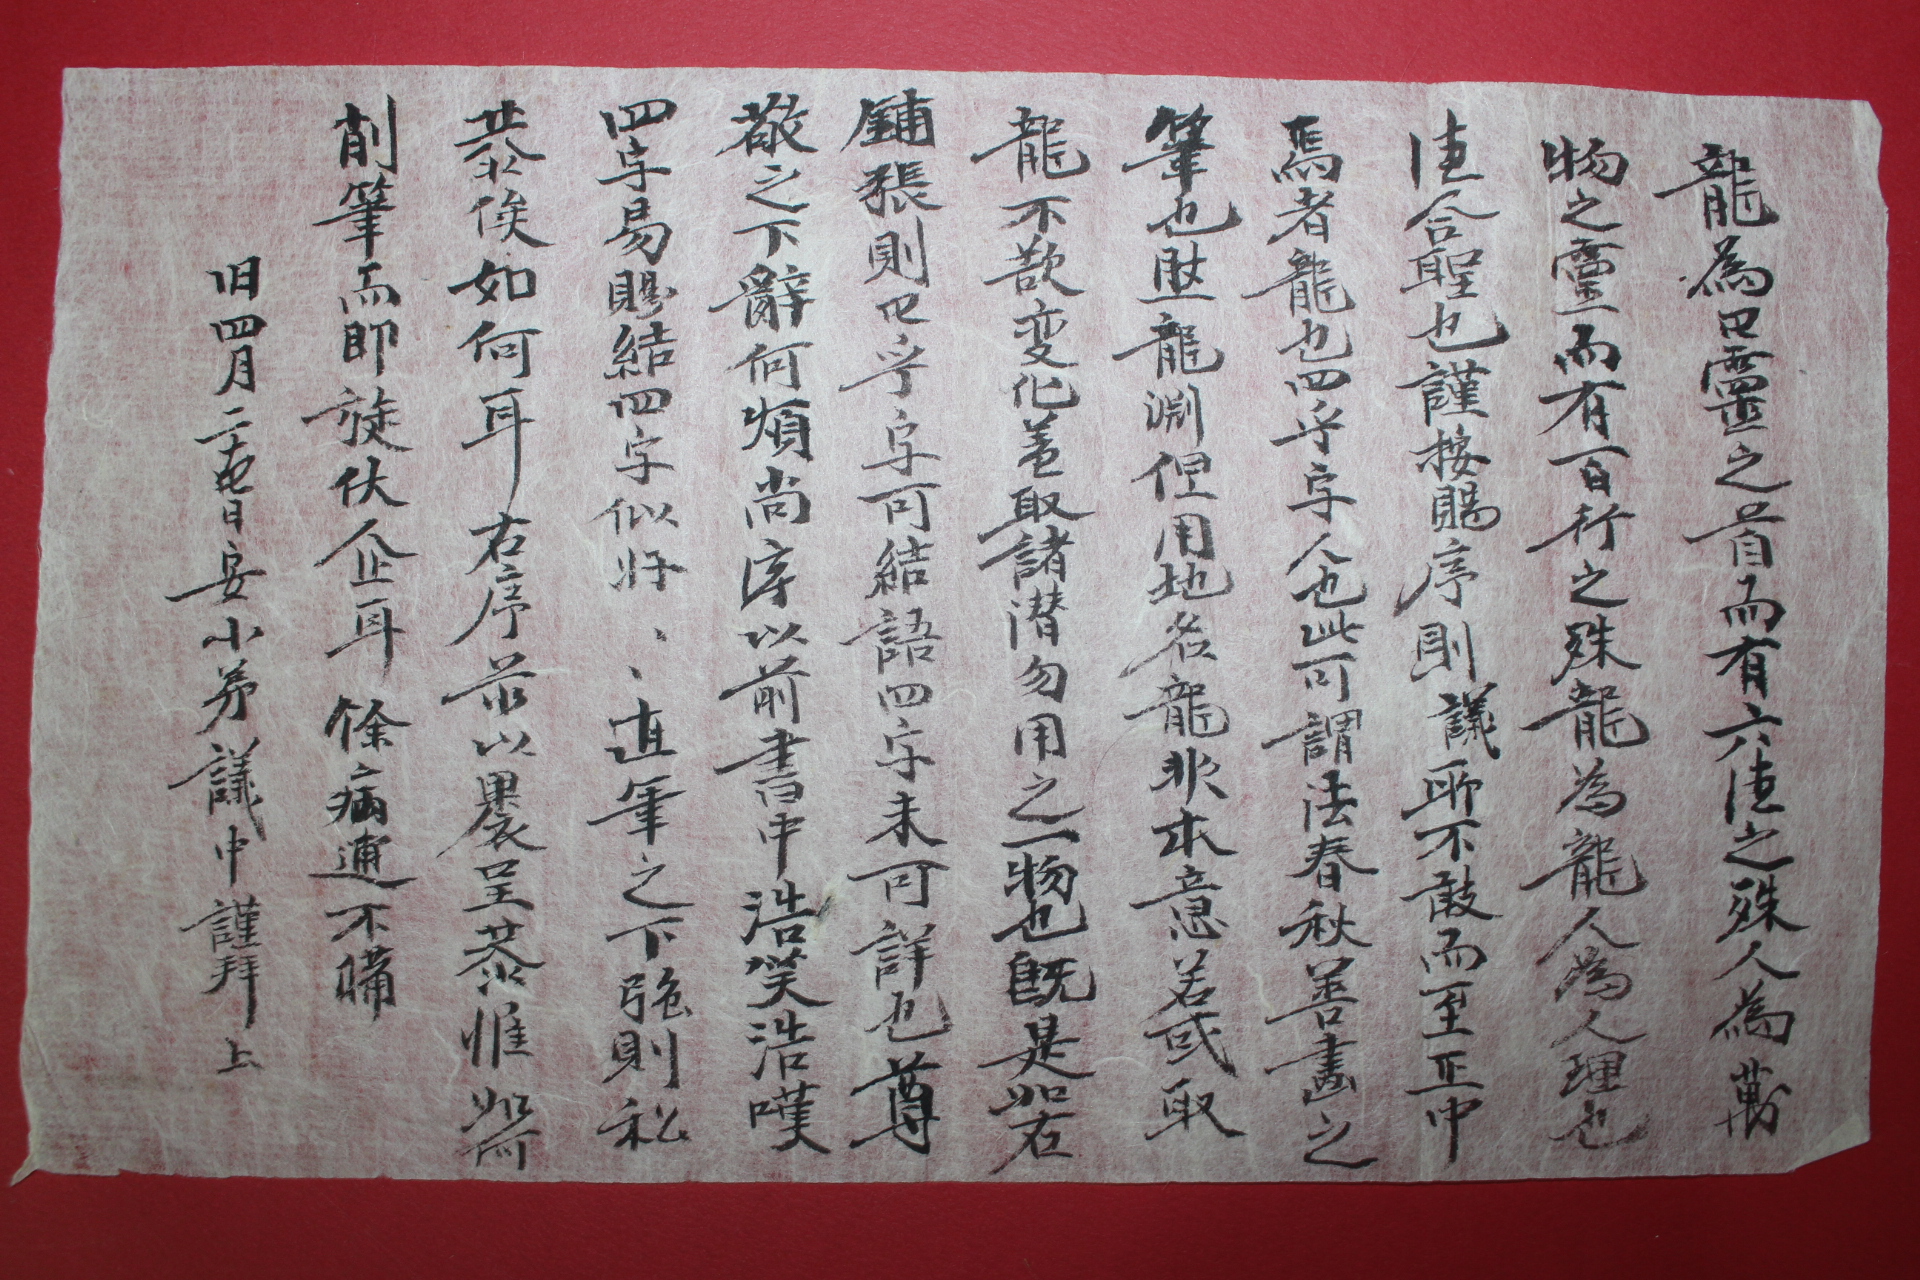 龍為四靈之首而有六德之殊人為萬
物之靈而有百行之殊龍為龍人為人理也
德合聖也謹按賜序則議所不敢而至正中
焉者龍也四乎字人也此可謂法春秋善畫之
筆也臥龍淵但用地名龍非本意若或取
龍不歆変化盖取諸潛勿用之一物也旣是如右
鋪張則四乎字可結語四字未可詳也尊
敬之下辭何煩尚序以前書中浩笑浩嘆
四字易賜結四字似好、、直筆之下強則私
恭俟如何耳右序茲以裹呈恭惟如何
削筆而即旋伏企耳餘病逋不備
旧四月二十七日安小弟議中謹拜上